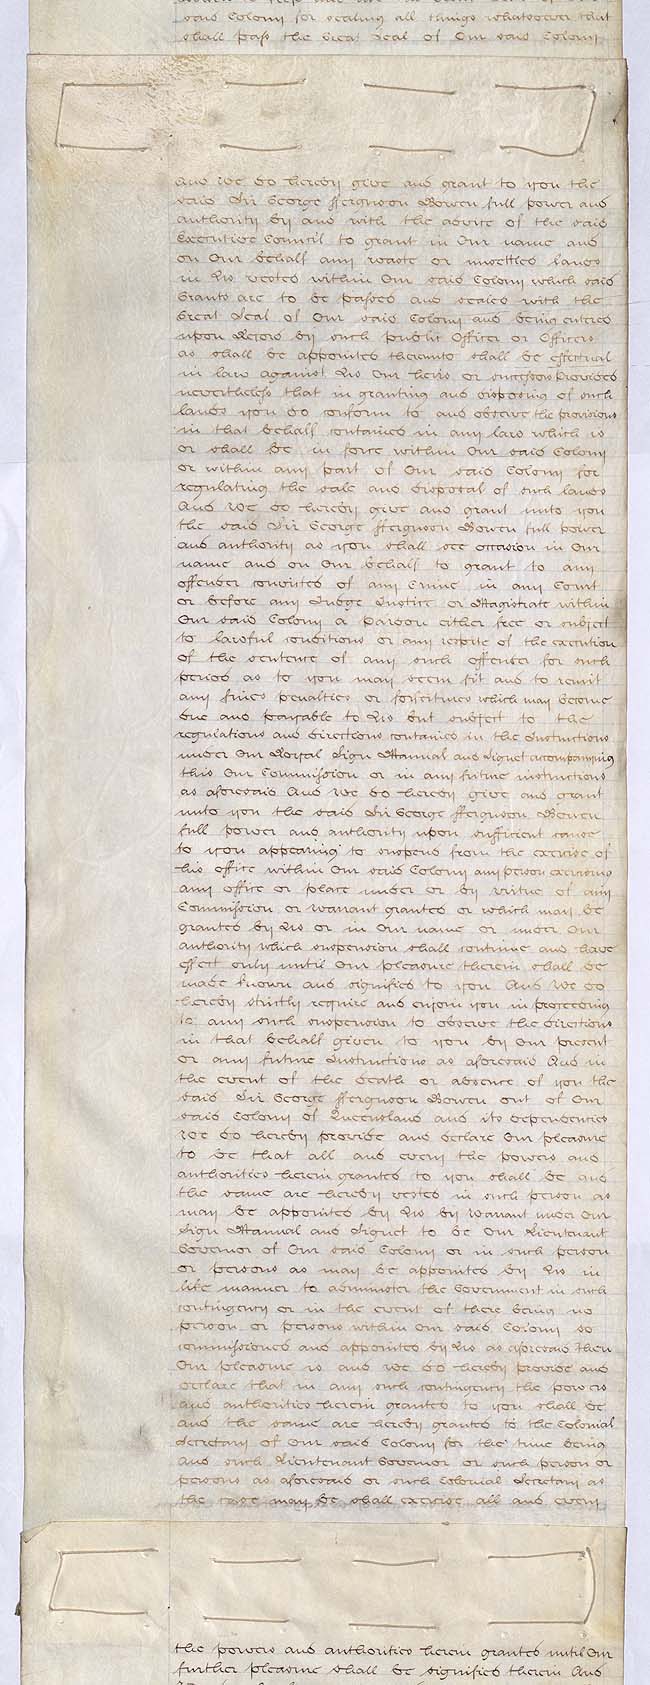 said Colony for sealing all things whatsoever that
shall pass the Great Seal of Our said Colony
And We do hereby give and grant to you the
said Sir George Fferguson Bowen full power and
authority by and with the advice of the said
Executive Council to grant in Our name and
on Our behalf any waste or unsettled lands
in Us vested within Our said Colony which said
Grants are to be passed and sealed with the
Great Seal of Our said Colony and being entered
upon Record by such public Officer or Officers
as shall be appointed thereunto shall be effectual
in law against Us Our heirs or successors Provided
nevertheless that in granting and disposing of such
lands you do conform to and observe the provisions
in that behalf contained in any law which is
or shall be in force within Our said Colony
or within any part of Our said Colony for
regulating the sale and disposal of such lands
And We do hereby give and grant unto you
the said Sir George Fferguson Bowen full power
and authority as you shall see occasion in Our
name and on Our behalf to grant to any
offender convicted of any Crime in any Court
or before any Judge Justice or Magistrate within
Our said Colony a pardon either free or subject
to lawful conditions or any respite of the execution
of the sentence of any such offender for such
period as to you may seem fit and to remit
any fines penalties or forfeitures which may become
due and payable to Us but subject to the
regulations and directions contained in the Instructions
under Our Royal Sign Manual and Signet accompanying
this Our Commission or in any future instructions
as aforesaid And We do hereby give and grant
unto you the said Sir George Fferguson Bowen
full power and authority upon sufficient cause
to you appearing to suspend from the exercise of
his office within Our said Colony any person exercising
any office or place under or by virtue of any
Commission or Warrant granted or which may be
granted by Us or in Our name or under Our
authority which suspension shall continue and have
effect only until Our pleasure therein shall be
made known and signified to you And We do
hereby strictly require and enjoin you in proceeding
to any such suspension to observe the directions
in that behalf given to you by Our present
or any future Instructions as aforesaid And in
the event of the death or absence of you the
said Sir George Fferguson Bowen out of Our
said Colony of Queensland and its dependencies
We do hereby provide and declare Our pleasure
to be that all and every the powers and
authorities herein granted to you shall be and
the same are hereby vested in such person as
may be appointed by Us by Warrant under Our
Sign Manual and Signet to be Our Lieutenant
Governor of Our said Colony or in such person
or persons as may be appointed by Us in
like manner to administer the Government in such
contingency or in the event of there being no
person or persons within Our said Colony so
commissioned and appointed by Us as aforesaid then
Our pleasure is and We do hereby provide and
declare that in any such contingency the powers
and authorities herein granted to you shall be
and the same are hereby granted to the Colonial
Secretary of Our said Colony for the time being
And such Lieutenant Governor or such person or
persons as aforesaid or such Colonial Secretary as
the case may be shall exercise all and every
the powers and authorities herein granted until Our
further pleasure shall be signified therein And